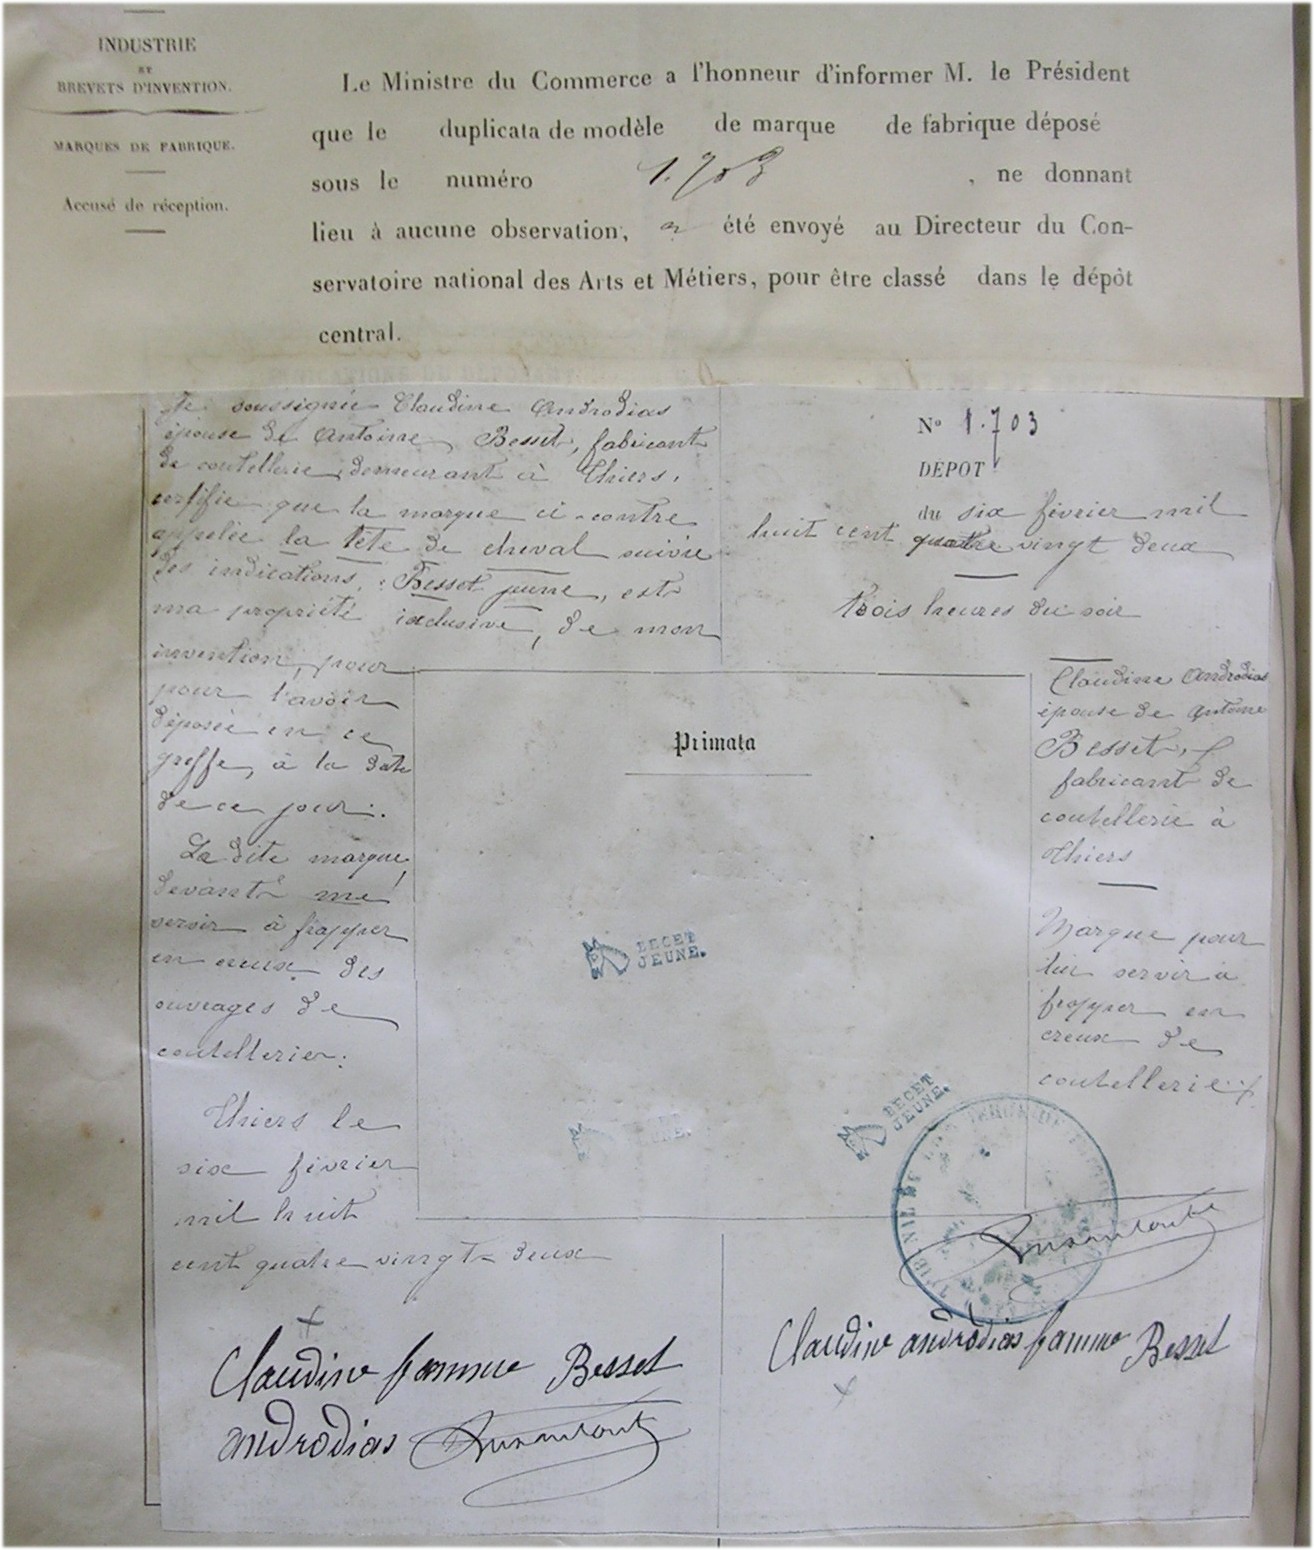 INDUSTRIE
ET
BREVETS D'INVENTION.
MARQUES DE FABRIQUE.
Accusé de réception.
Le Ministre du Commerce a l'honneur d'informer M. le Président
que le duplicata de modèle de marque de fabrique déposé
sous le numéro 1.703 , ne donnant
lieu à aucune observation, a été envoyé au Directeur du Con-
servatoire national des Arts et Métiers, pour être classé dans le dépôt
central.
Je soussignée Claudine Androdias
épouse de Antoine Besset, fabricant
de coutellerie demeurant à Thiers,
certifie que la marque ci-contre
appelée la tête de cheval suivie
des indications : Besset jeune, est
ma propriété exclusive, de mon
invention, pour
pour l'avoir
déposée en ce
greffe, à la date
de ce jour.
La dite marque
devant me
servir à frapper
en creux des
ouvrages de
coutellerie.
Thiers le
six février
mil huit
cent quatre vingt-deux
Claudine famme Besset
androdias
No 1.703
DÉPOT
du six février mil
huit cent quatre vingt deux
Trois heures du soir
Primata
BECET
JEUNE.
JEUNE.
BECET
JEUNE.
Claudine Androdias
épouse de Antoine
Besset,
fabricant de
coutellerie à
Thiers
Marque pour
lui servir à
frapper en
creux de
coutellerie
Claudine androdias famme Besset